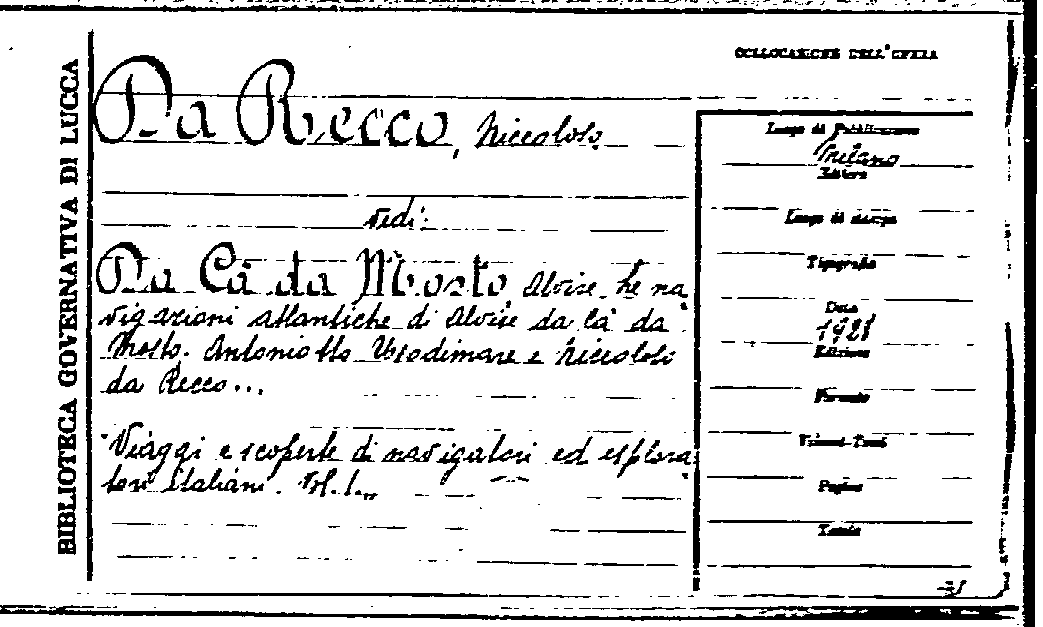 BIBLIOTECA GOVERNATIVA DI LUCCA
COLLOCAZIONE DELL'OPERA
Da Recco, Niccoloso
vedi:
Da Cà da Mosto Alvise. Le na
vigazioni atlantiche di Alvise da Cà da
Mosto. Antoniotto Usodimare e Niccoloso
da Recco...
Viaggi e scoperte di navigatori ed esplora
tori italiani. Vol. 1..
Luogo di Pubblicazione
Milano
Editore
Luogo di stampa
Tipografia
Data
1928
Edizione
Formato
Volumi-Tomi
Pagine
Tavole